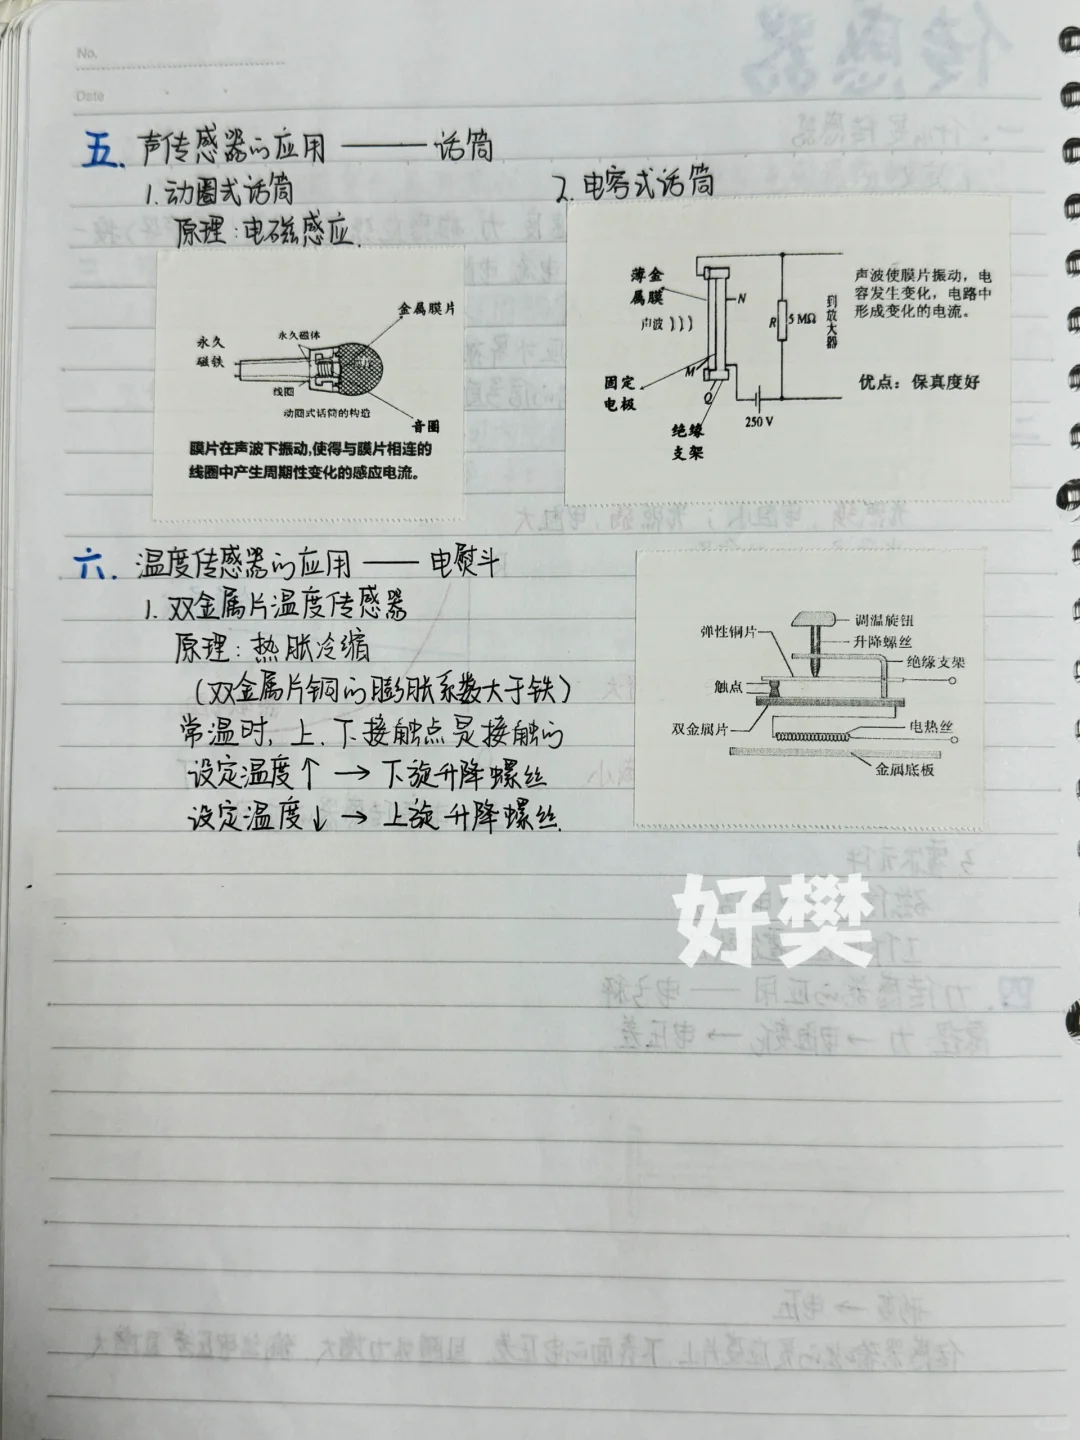 No.
Date
五. 声传感器的应用 —— 话筒
1. 动圈式话筒
原理:电磁感应.
金属膜片
永久磁铁
永久磁体
线圈
动圈式话筒的构造
音圈
膜片在声波下振动,使得与膜片相连的
线圈中产生周期性变化的感应电流。
2. 电容式话筒
薄金
属膜
声波
N
M
Q
固定
电极
绝缘
支架
R
5 MΩ
250 V
到放大器
声波使膜片振动,电
容发生变化,电路中
形成变化的电流。
优点:保真度好
六. 温度传感器的应用 —— 电熨斗
1. 双金属片温度传感器
原理:热胀冷缩
(双金属片铜的膨胀系数大于铁)
常温时,上、下接触点是接触的
设定温度↑ → 下旋升降螺丝
设定温度↓ → 上旋升降螺丝.
调温旋钮
弹性铜片
升降螺丝
绝缘支架
触点
双金属片
电热丝
金属底板
好樊